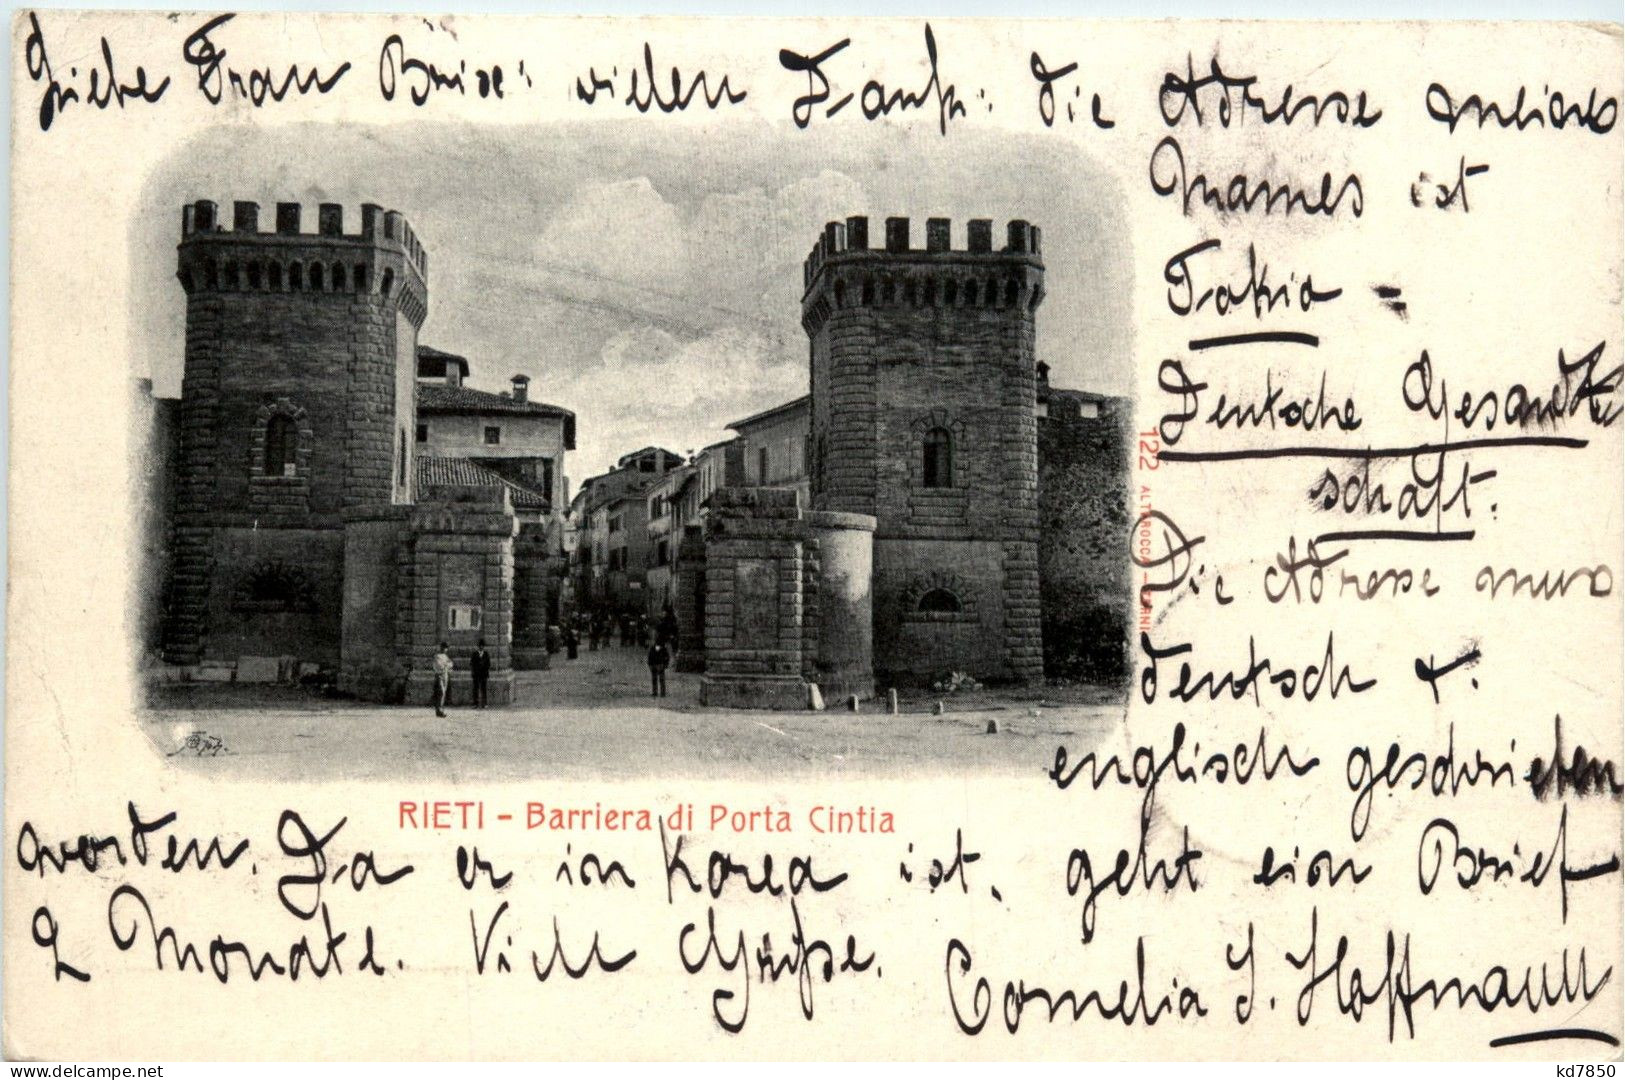 Liebe Frau Brise: vielen Dank: die Adresse meines
Mannes ist
Tokio =
Deutsche Gesandt
schaft.
Die Adresse muss
deutsch +.
englisch geschrieben
worden. Da er in Korea ist, geht ein Brief
2 Monate. Viele Grüsse.
Cornelia J. Hoffmann
122 ALTEROCCA - TERNI
RIETI - Barriera di Porta Cintia
kd7850